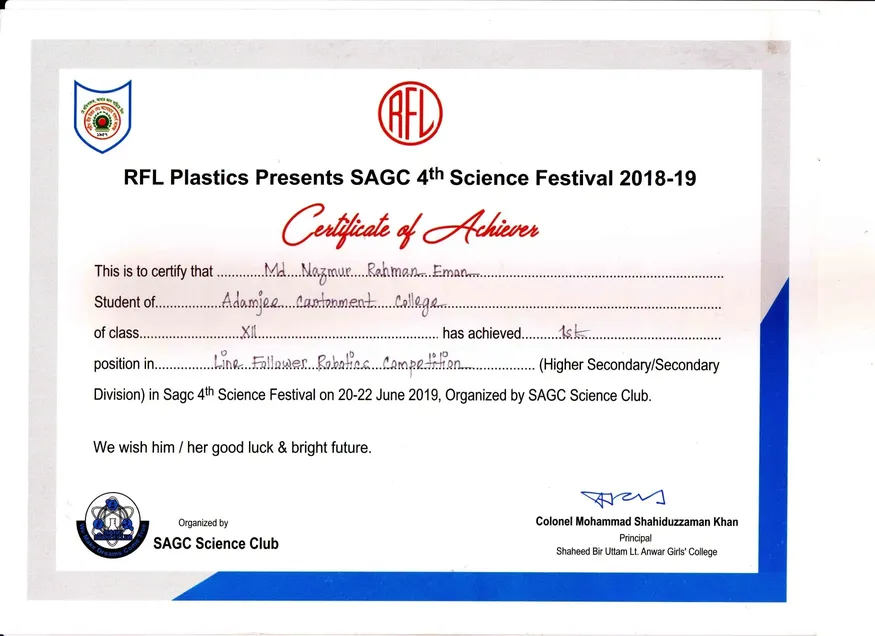 RFL
RFL Plastics Presents SAGC 4th Science Festival 2018-19
Certificate of Achiever
This is to certify that ............Md. Nazmur Rahman Eman............
Student of............Adamjee Cantonment College............
of class............XII............ has achieved......1st............
position in............Line Follower Robotics Competition............ (Higher Secondary/Secondary
Division) in Sagc 4th Science Festival on 20-22 June 2019, Organized by SAGC Science Club.
We wish him / her good luck & bright future.
Organized by
SAGC Science Club
Colonel Mohammad Shahiduzzaman Khan
Principal
Shaheed Bir Uttam Lt. Anwar Girls' College